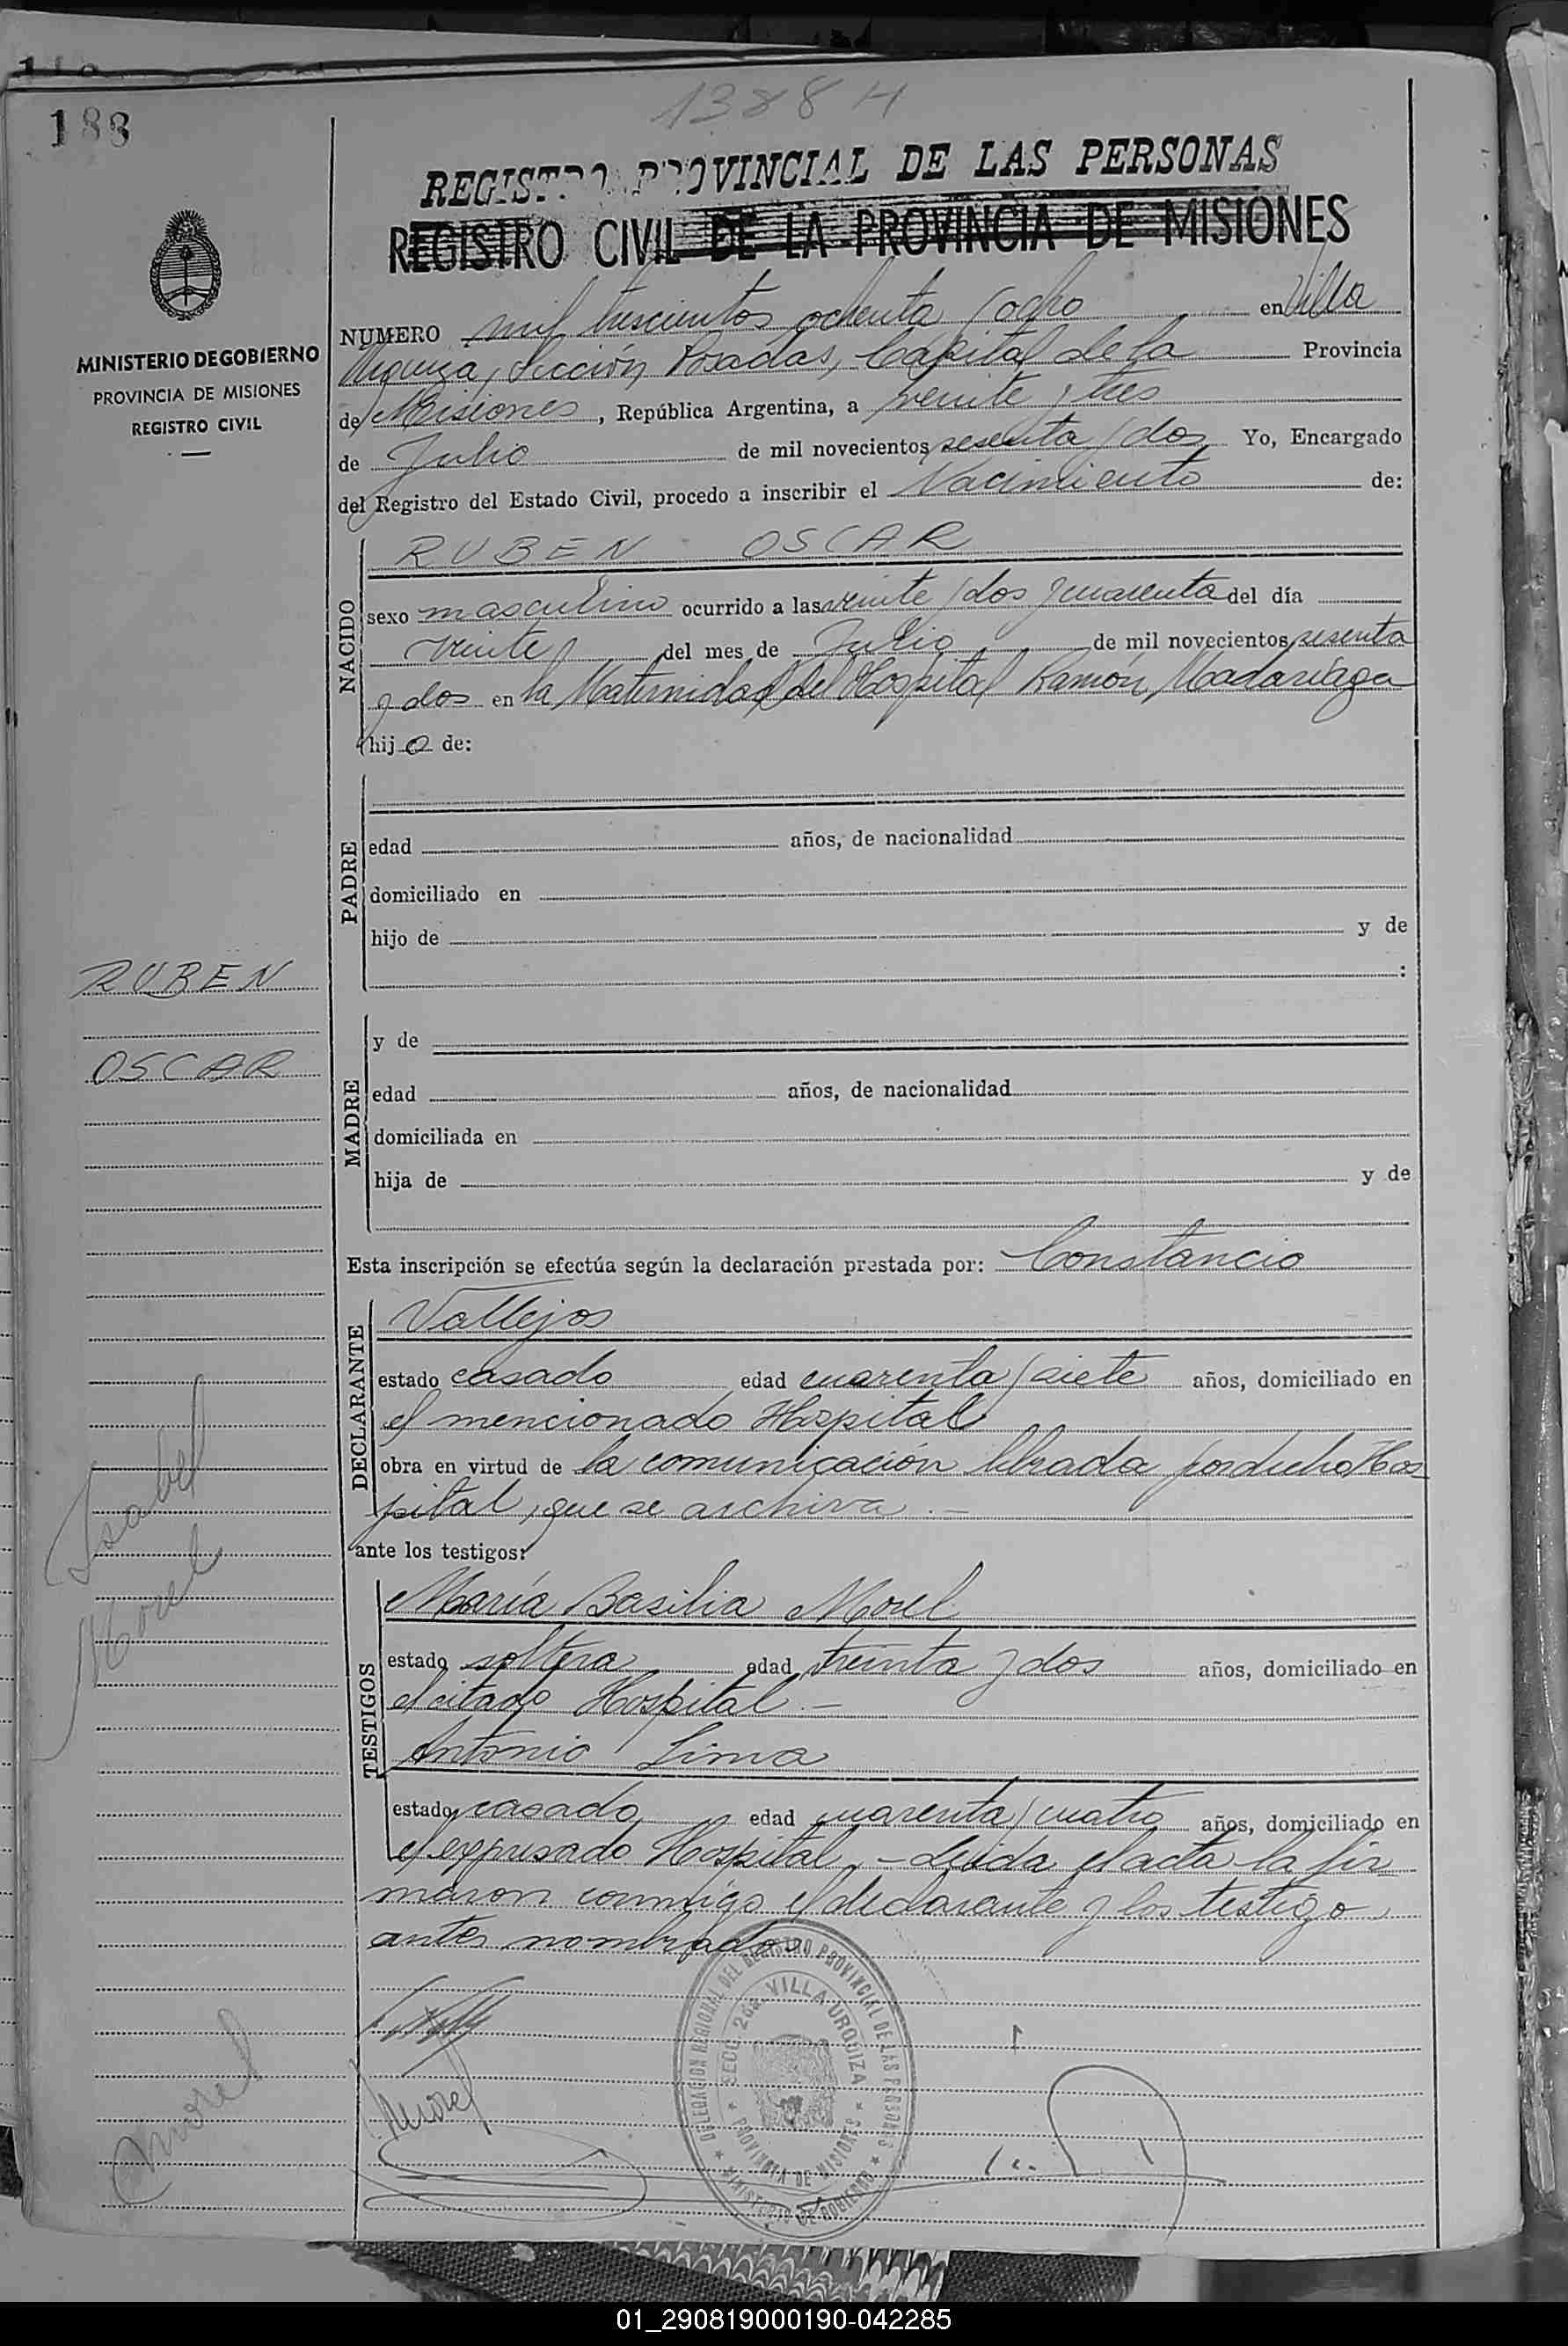 188
1388 H
REGISTRO PROVINCIAL DE LAS PERSONAS
REGISTRO CIVIL DE LA PROVINCIA DE MISIONES
MINISTERIO DE GOBIERNO
PROVINCIA DE MISIONES
REGISTRO CIVIL
NUMERO mil trescientos ochenta y ocho en Villa
Urquiza, Sección Posadas, Capital de la Provincia
de Misiones, República Argentina, a veinte y tres
de Julio de mil novecientos sesenta y dos Yo, Encargado
del Registro del Estado Civil, procedo a inscribir el Nacimiento de:
NACIDO
RUBEN OSCAR
sexo masculino ocurrido a las veinte y dos y cuarenta del día
veinte del mes de Julio de mil novecientos sesenta
y dos en la Maternidad del Hospital Ramón Madariaga
hijo de:
PADRE
edad años, de nacionalidad
domiciliado en
hijo de y de
:
RUBEN
OSCAR
MADRE
y de
edad años, de nacionalidad
domiciliada en
hija de y de
Esta inscripción se efectúa según la declaración prestada por: Constancio
DECLARANTE
Vallejos
estado casado edad cuarenta y siete años, domiciliado en
el mencionado Hospital
obra en virtud de la comunicación librada por dicho Hos
pital, que se archiva.-
ante los testigos:
Isabel
Morel
TESTIGOS
María Basilia Morel
estado soltera edad treinta y dos años, domiciliado en
el citado Hospital.-
Antonio Lima
estado casado edad cuarenta y cuatro años, domiciliado en
el expresado Hospital.- Leída el acta la fir
maron conmigo el declarante y los testigos
antes nombrados
DELEGACION REGIONAL DEL REGISTRO PROVINCIAL DE LAS PERSONAS
SECC. 2da. VILLA URQUIZA
PROVINCIA DE MISIONES
MINISTERIO DE GOBIERNO
Morel
Morel
01_290819000190-042285